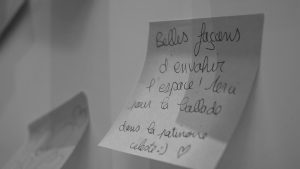 Belles façons
d'envahir
l'espace! Merci
pour la ballade
dans la patinoire
céleste :) ♡